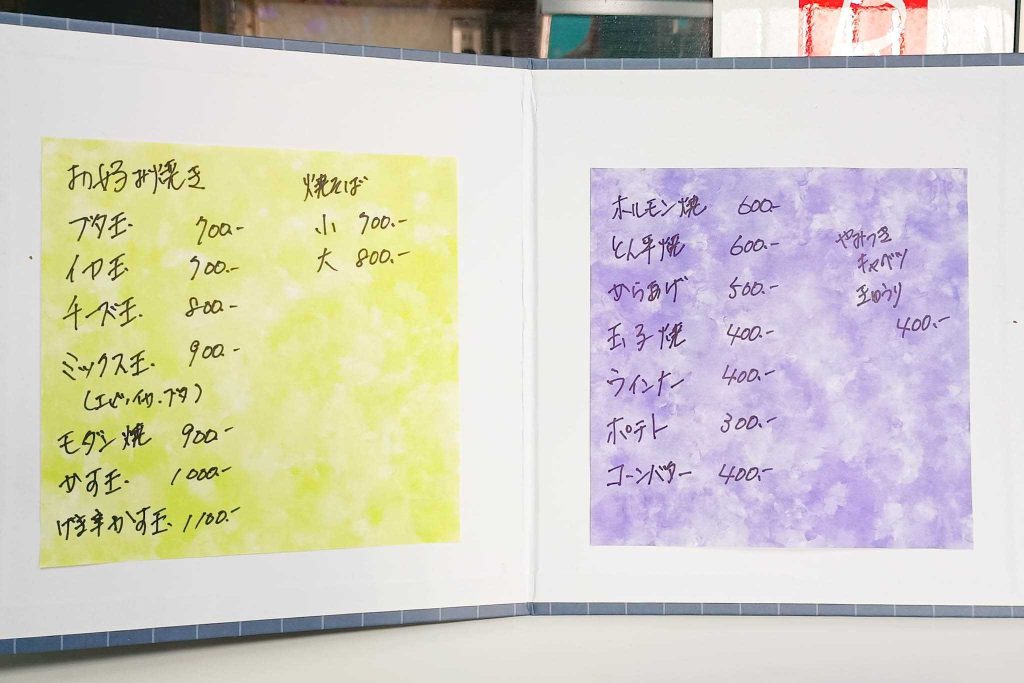 お好み焼き
ブタ玉. 700.-
イカ玉. 700.-
チーズ玉. 800.-
ミックス玉. 900.-
(エビ・イカ・ブタ)
モダン焼 900.-
かす玉. 1000.-
げき辛かす玉. 1100.-
焼そば
小 700.-
大 800.-
ホルモン焼 600.-
とん平焼 600.-
からあげ 500.-
玉子焼 400.-
ウインナー 400.-
ポテト 300.-
コーンバター 400.-
やみつき
キャベツ
きゅうり
400.-